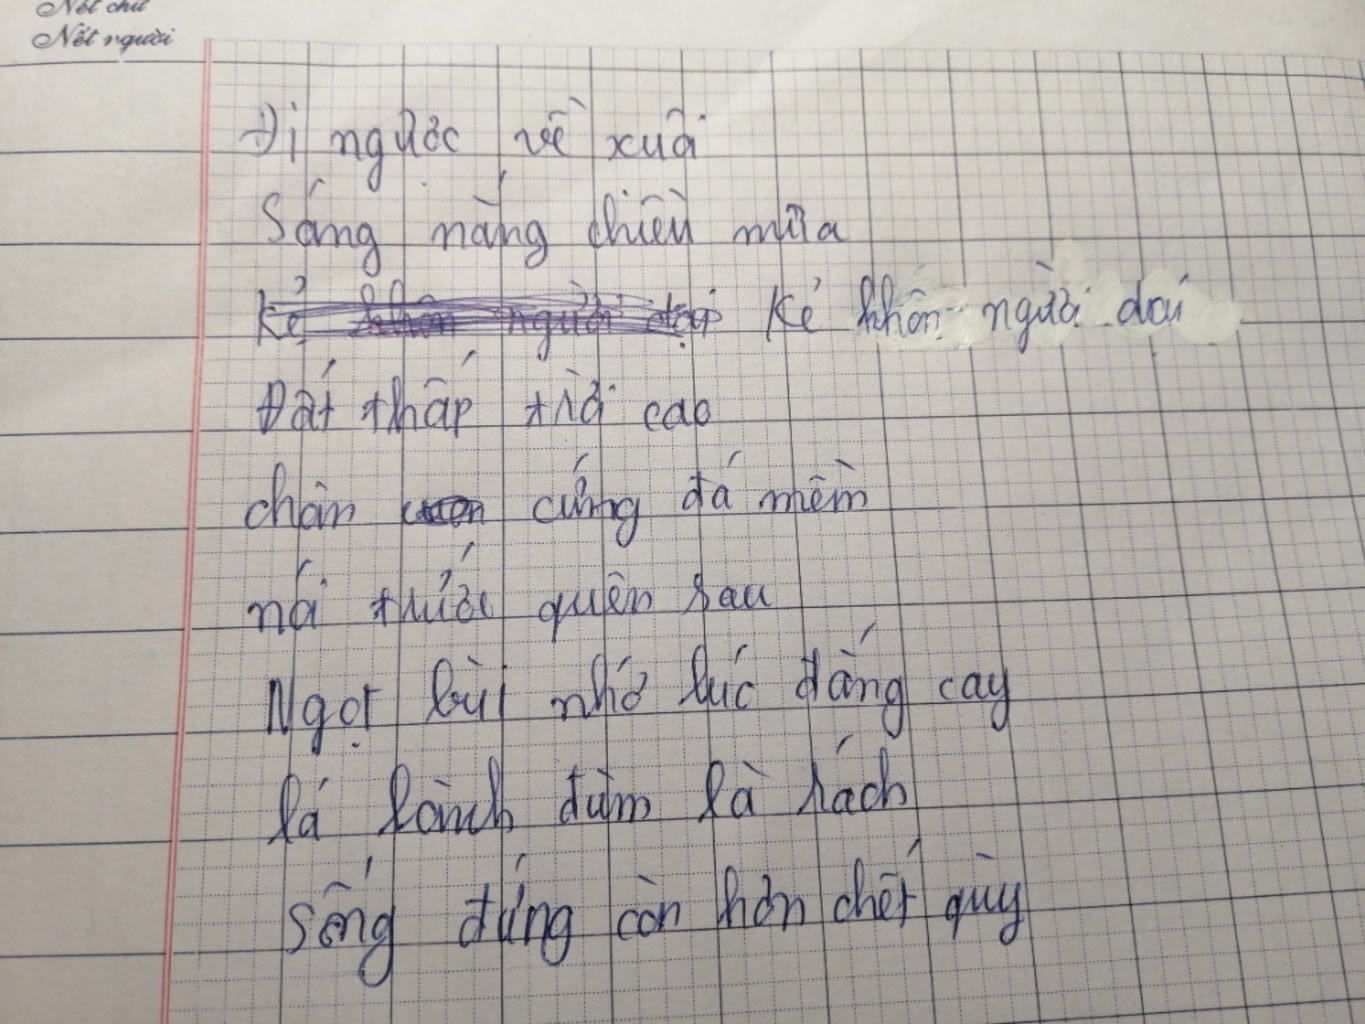 Nét chữ
Nết người
Đi ngược về xuôi
Sáng nắng chiều mưa
Kẻ khôn người dại Kẻ khôn người dại
Đất thấp trời cao
chân cứng đá mềm
nói trước quên sau
Ngọt bùi nhớ lúc đắng cay
lá lành đùm là rách
Sống đứng còn hơn chết qùy